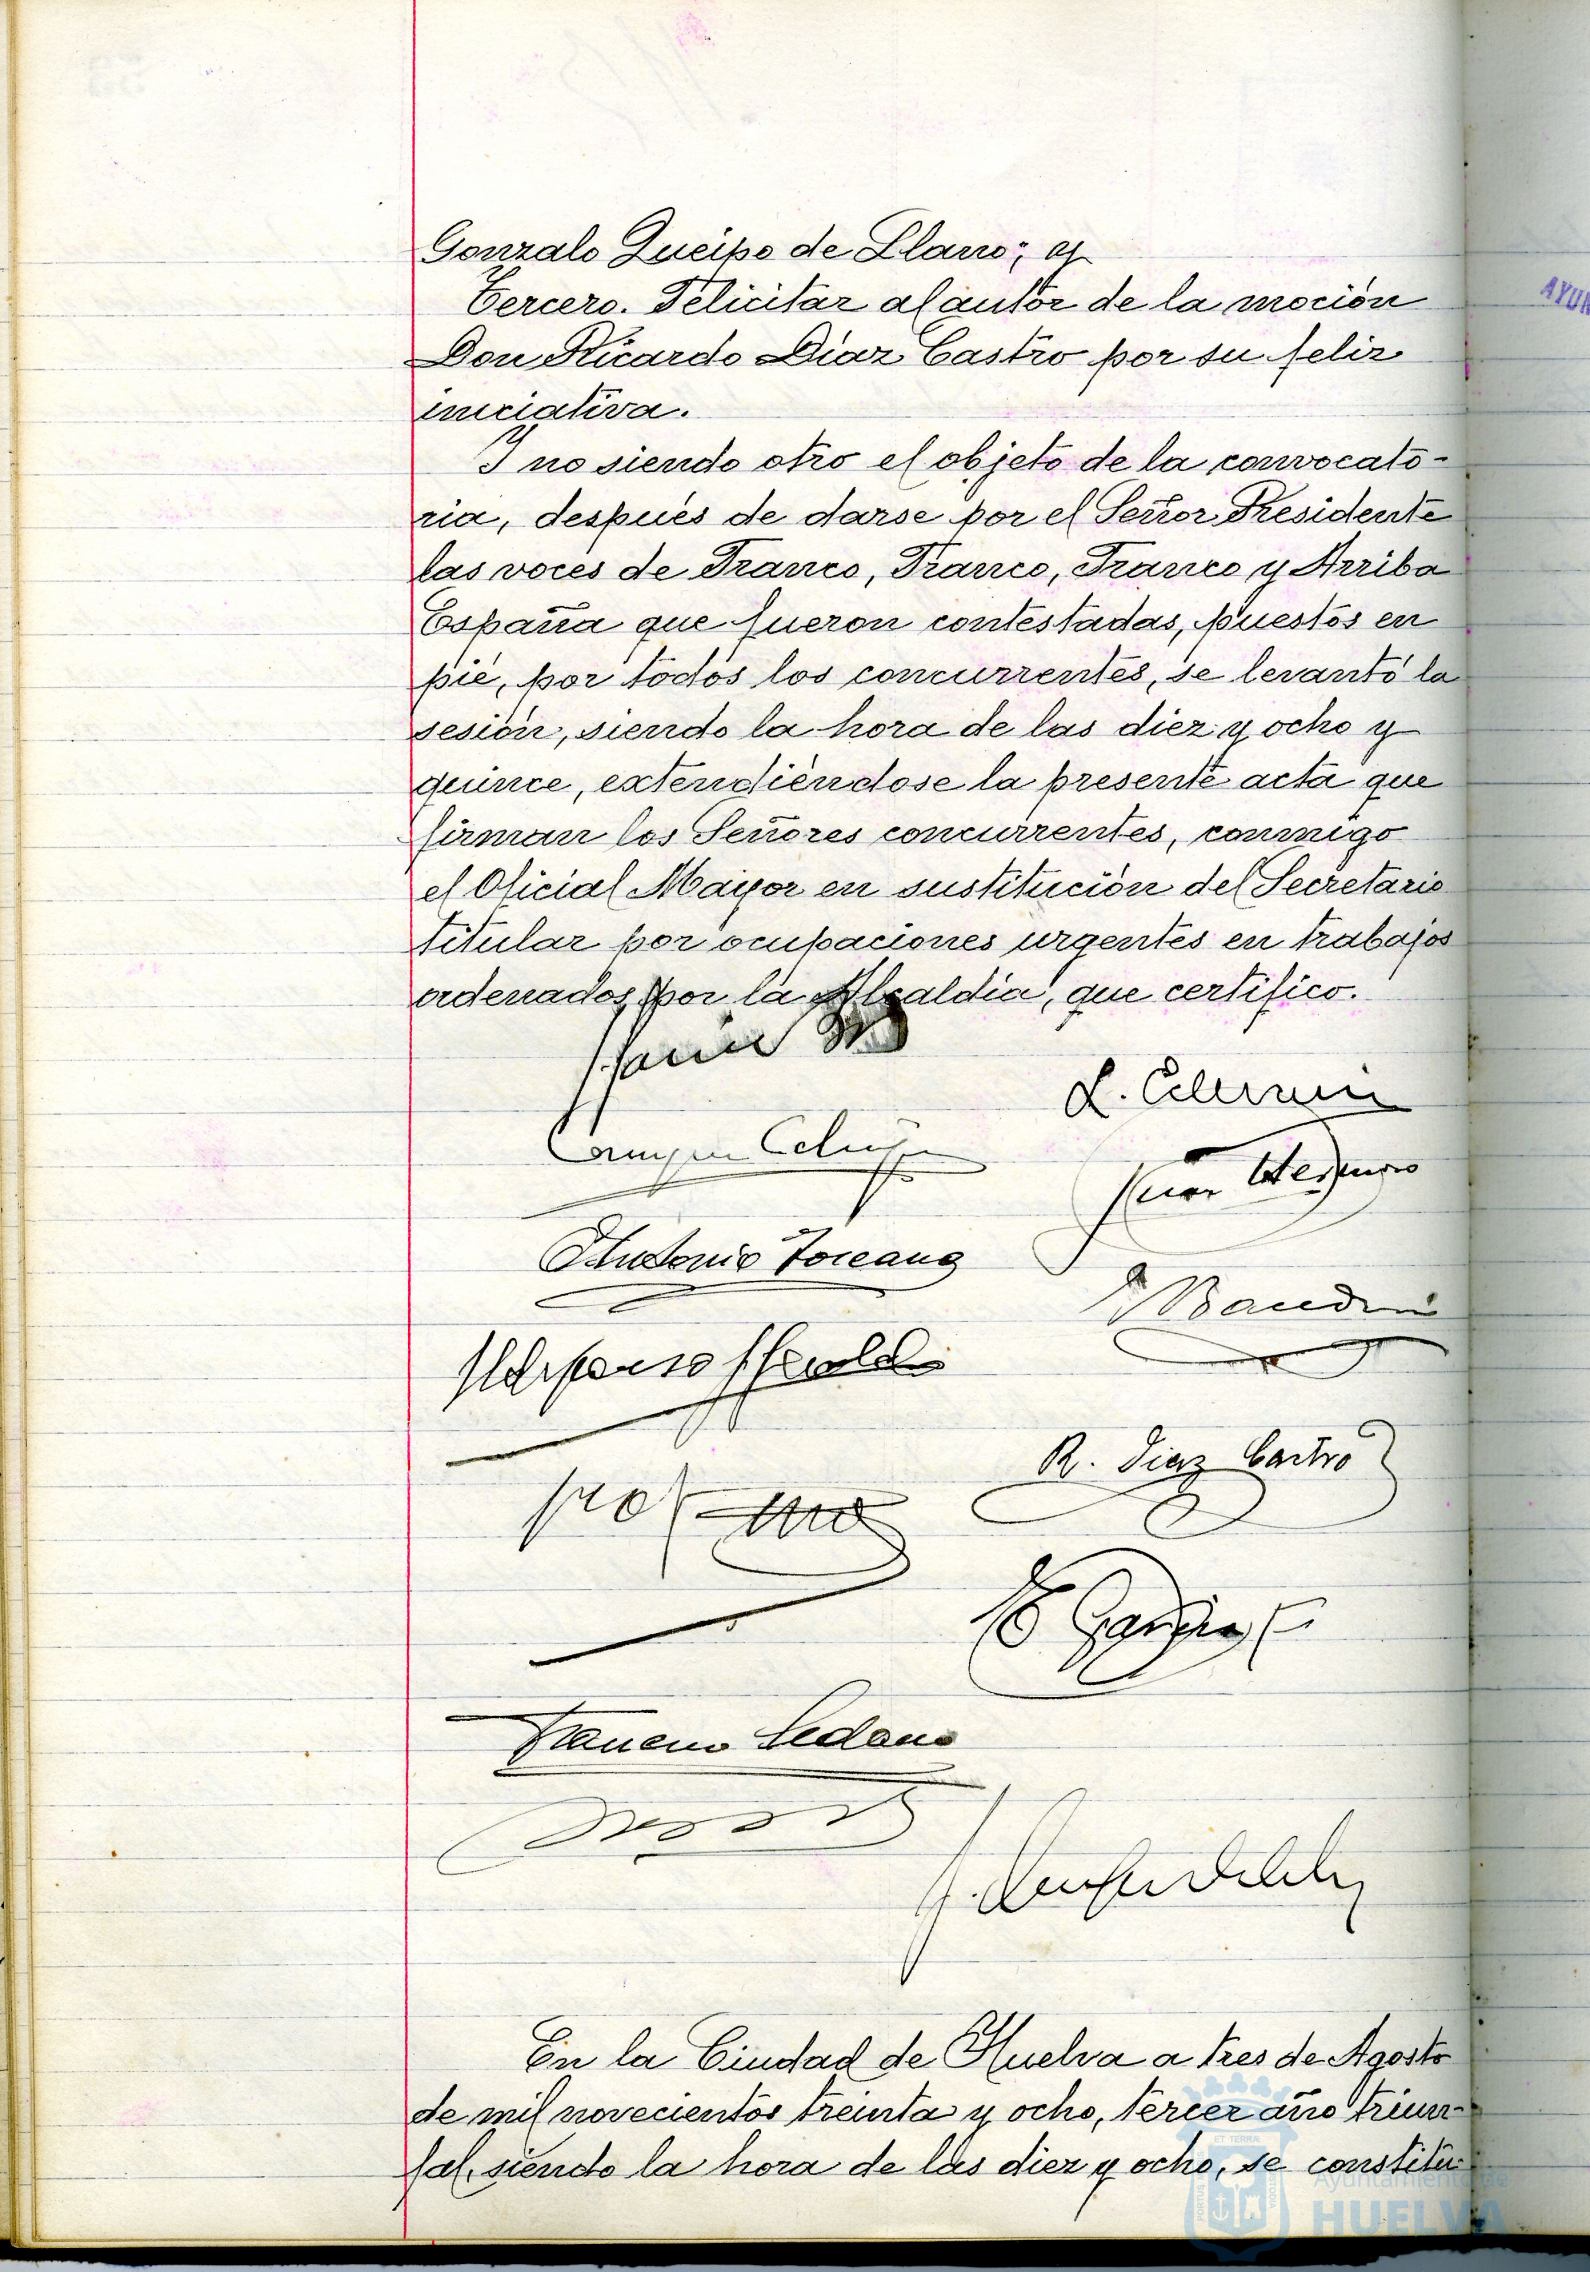 Gonzalo Queipo de Llano; y
Tercero. Felicitar al autor de la moción
Don Ricardo Diaz Castro por su feliz
iniciativa.
Y no siendo otro el objeto de la convocato-
ria, después de darse por el Señor Presidente
las voces de Franco, Franco, Franco y Arriba
España que fueron contestadas, puestos en
pié, por todos los concurrentes, se levantó la
sesión, siendo la hora de las diez y ocho y
quince, extendiéndose la presente acta que
firman los Señores concurrentes, conmigo
el Oficial Mayor en sustitución del Secretario
titular por ocupaciones urgentes en trabajos
ordenados por la Alcaldia, que certifico.
Antonio Toscano
R. Diaz Castro
Francisco Sedano
En la Ciudad de Huelva a tres de Agosto
de mil novecientos treinta y ocho, tercer año triun-
fal, siendo la hora de las diez y ocho, se constitu-
Ayuntamiento de
HUELVA